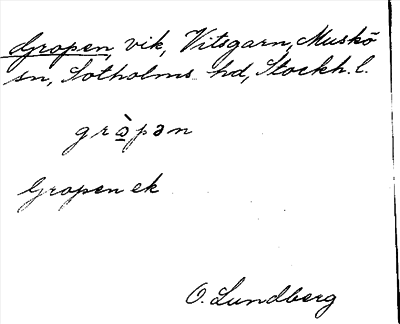 Gropen, vik, Vitsgarn, Muskö
sn, Sotholms hd, Stockh. l.
grⱥ̀pən
Gropen ek
O. Lundberg